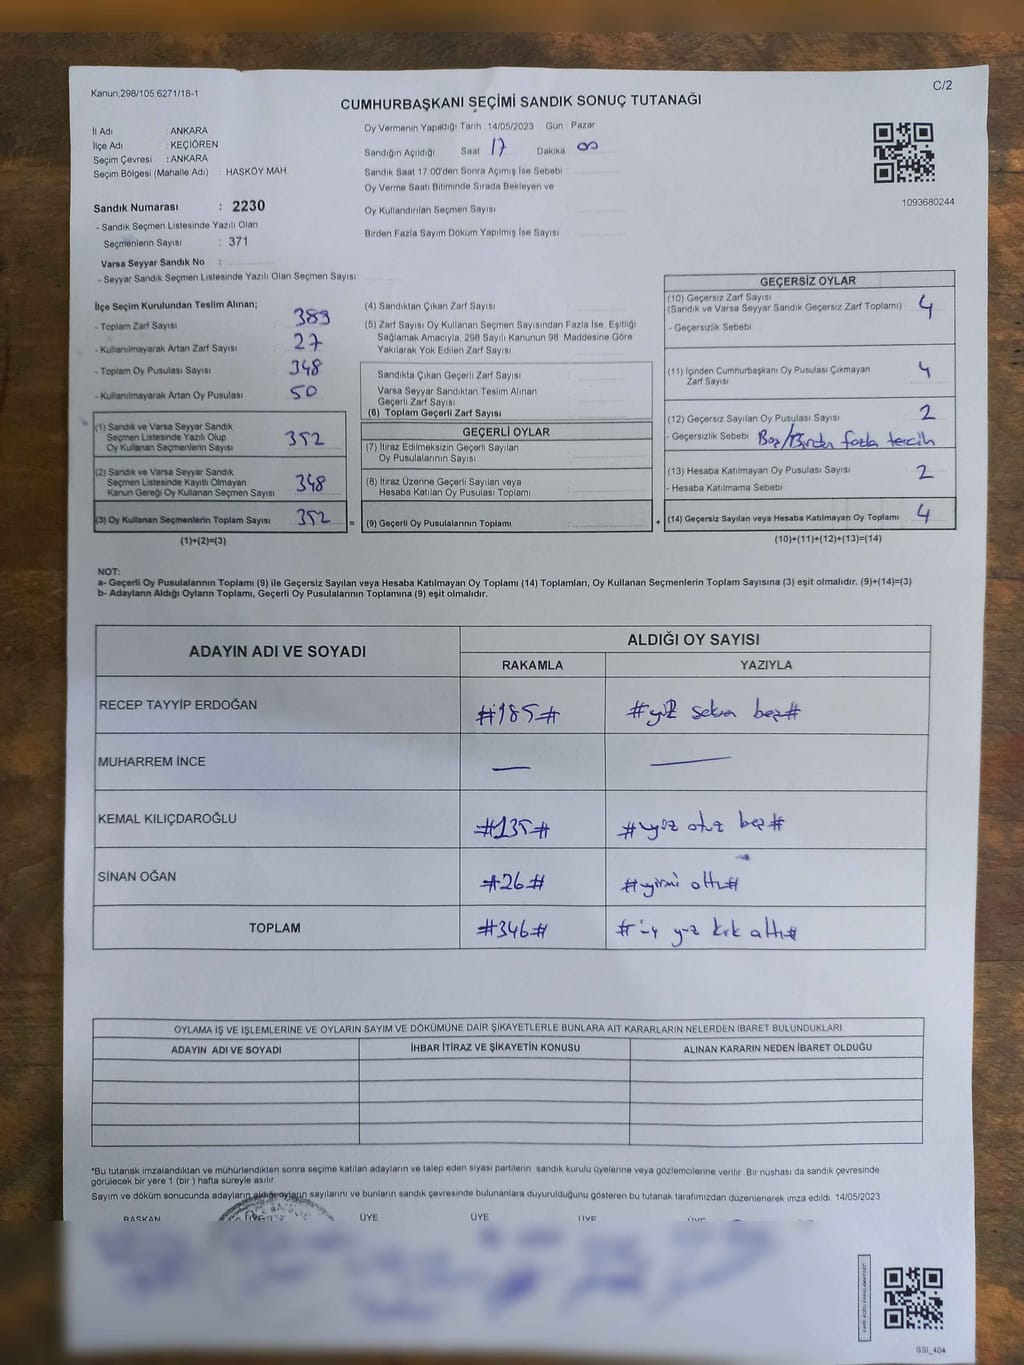 Kanun;298/105,6271/18-1
C/2
CUMHURBAŞKANI SEÇİMİ SANDIK SONUÇ TUTANAĞI
İl Adı : ANKARA
İlçe Adı : KEÇİÖREN
Seçim Çevresi : ANKARA
Seçim Bölgesi (Mahalle Adı) : HASKÖY MAH.
Sandık Numarası : 2230
- Sandık Seçmen Listesinde Yazılı Olan
Seçmenlerin Sayısı : 371
Varsa Seyyar Sandık No :
- Seyyar Sandık Seçmen Listesinde Yazılı Olan Seçmen Sayısı
Oy Vermenin Yapıldığı Tarih : 14/05/2023 Gün : Pazar
Sandığın Açıldığı Saat 17 Dakika 00
Sandık Saat 17.00'den Sonra Açımış İse Sebebi
Oy Verme Saati Bitiminde Sırada Bekleyen ve
Oy Kullandırılan Seçmen Sayısı
Birden Fazla Sayım Döküm Yapılmış İse Sayısı
1093680244
İlçe Seçim Kurulundan Teslim Alınan;
- Toplam Zarf Sayısı 389
- Kullanılmayarak Artan Zarf Sayısı 27
- Toplam Oy Pusulası Sayısı 348
- Kullanılmayarak Artan Oy Pusulası 50
(1) Sandık ve Varsa Seyyar Sandık
Seçmen Listesinde Yazılı Olup
Oy Kullanan Seçmenlerin Sayısı 352
(2) Sandık ve Varsa Seyyar Sandık
Seçmen Listesinde Kayıtlı Olmayan
Kanun Gereği Oy Kullanan Seçmen Sayısı 348
(3) Oy Kullanan Seçmenlerin Toplam Sayısı 352 =
(1)+(2)=(3)
(4) Sandıktan Çıkan Zarf Sayısı
(5) Zarf Sayısı Oy Kullanan Seçmen Sayısından Fazla İse, Eşitliği
Sağlamak Amacıyla, 298 Sayılı Kanunun 98. Maddesine Göre
Yakılarak Yok Edilen Zarf Sayısı
Sandıkta Çıkan Geçerli Zarf Sayısı
Varsa Seyyar Sandıktan Teslim Alınan
Geçerli Zarf Sayısı
(6) Toplam Geçerli Zarf Sayısı
GEÇERLİ OYLAR
(7) İtiraz Edilmeksizin Geçerli Sayılan
Oy Pusulalarının Sayısı
(8) İtiraz Üzerine Geçerli Sayılan veya
Hesaba Katılan Oy Pusulası Toplamı
(9) Geçerli Oy Pusulalarının Toplamı +
GEÇERSİZ OYLAR
(10) Geçersiz Zarf Sayısı
(Sandık ve Varsa Seyyar Sandık Geçersiz Zarf Toplamı) 4
- Geçersizlik Sebebi
(11) İçinden Cumhurbaşkanı Oy Pusulası Çıkmayan
Zarf Sayısı 4
(12) Geçersiz Sayılan Oy Pusulası Sayısı 2
- Geçersizlik Sebebi Boş/Birden fazla tercih
(13) Hesaba Katılmayan Oy Pusulası Sayısı 2
- Hesaba Katılmama Sebebi
(14) Geçersiz Sayılan veya Hesaba Katılmayan Oy Toplamı 4
(10)+(11)+(12)+(13)=(14)
NOT:
a- Geçerli Oy Pusulalarının Toplamı (9) ile Geçersiz Sayılan veya Hesaba Katılmayan Oy Toplamı (14) Toplamları, Oy Kullanan Seçmenlerin Toplam Sayısına (3) eşit olmalıdır. (9)+(14)=(3)
b- Adayların Aldığı Oyların Toplamı, Geçerli Oy Pusulalarının Toplamına (9) eşit olmalıdır.
ADAYIN ADI VE SOYADI
ALDIĞI OY SAYISI
RAKAMLA YAZIYLA
RECEP TAYYİP ERDOĞAN #185# #yüz seksen beş#
MUHARREM İNCE — —
KEMAL KILIÇDAROĞLU #135# #yüz otuz beş#
SİNAN OĞAN #26# #yirmi altı#
TOPLAM #346# #üç yüz kırk altı#
OYLAMA İŞ VE İŞLEMLERİNE VE OYLARIN SAYIM VE DÖKÜMÜNE DAİR ŞİKAYETLERLE BUNLARA AİT KARARLARIN NELERDEN İBARET BULUNDUKLARI
ADAYIN ADI VE SOYADI İHBAR İTİRAZ VE ŞİKAYETİN KONUSU ALINAN KARARIN NEDEN İBARET OLDUĞU
*Bu tutanak imzalandıktan ve mühürlendikten sonra seçime katılan adayların ve talep eden siyasi partilerin sandık kurulu üyelerine veya gözlemcilerine verilir. Bir nüshası da sandık çevresinde
görülecek bir yere 1 (bir ) hafta süreyle asılır.
Sayım ve döküm sonucunda adayların aldığı oyların sayılarını ve bunların sandık çevresinde bulunanlara duyurulduğunu gösteren bu tutanak tarafımızdan düzenlenerek imza edildi. 14/05/2023
BAŞKAN ÜYE ÜYE ÜYE ÜYE
SSI_404